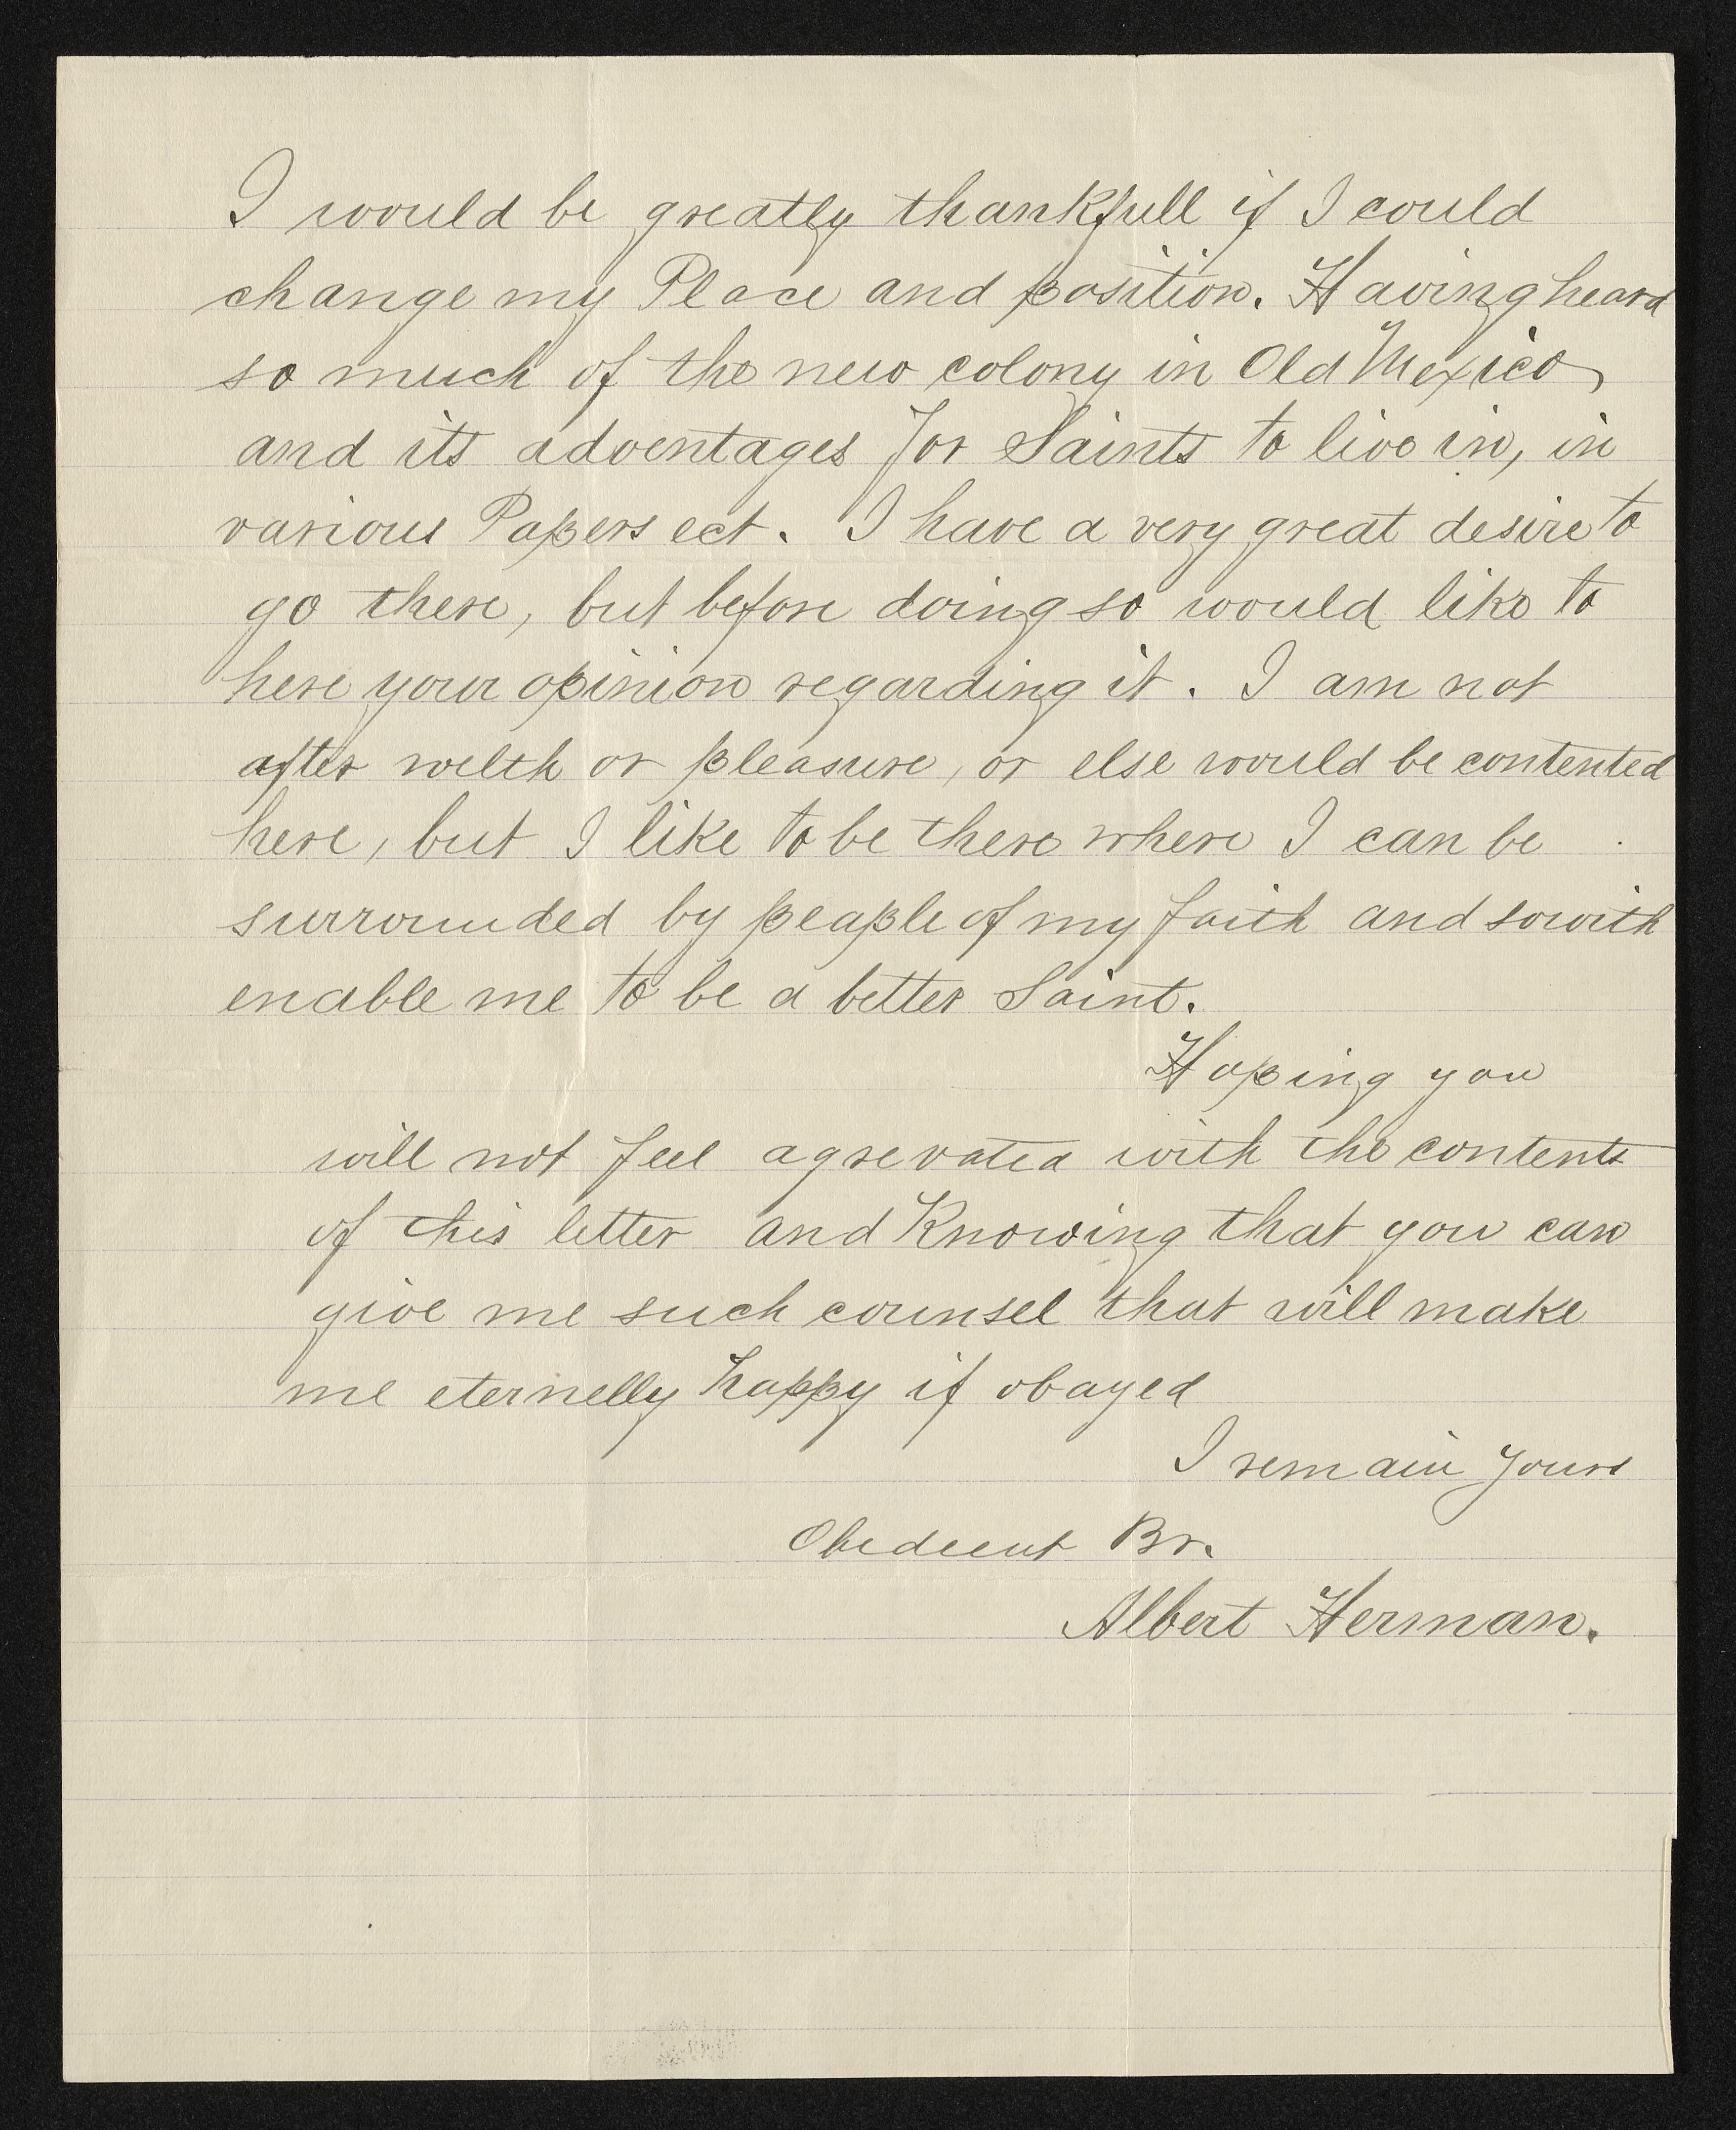 I would be greatly thankfull if I could
change my Place and position. Having heard
so much of the new colony in Old Mexico,
and its adventages for Saints to live in, in
various Papers ect. I have a very great desire to
go there, but before doing so would like to
here your opinion regarding it. I am not
after welth or pleasure, or else would be contented
here, but I like to be there where I can be
surrounded by people of my faith and sowith
enable me to be a better Saint.
Hoping you
will not feel agrevated with the contents
of this letter and Knowing that you can
give me such counsel that will make
me eternelly happy if obayed
I remain Yours
Obedient Br.
Albert Herman.